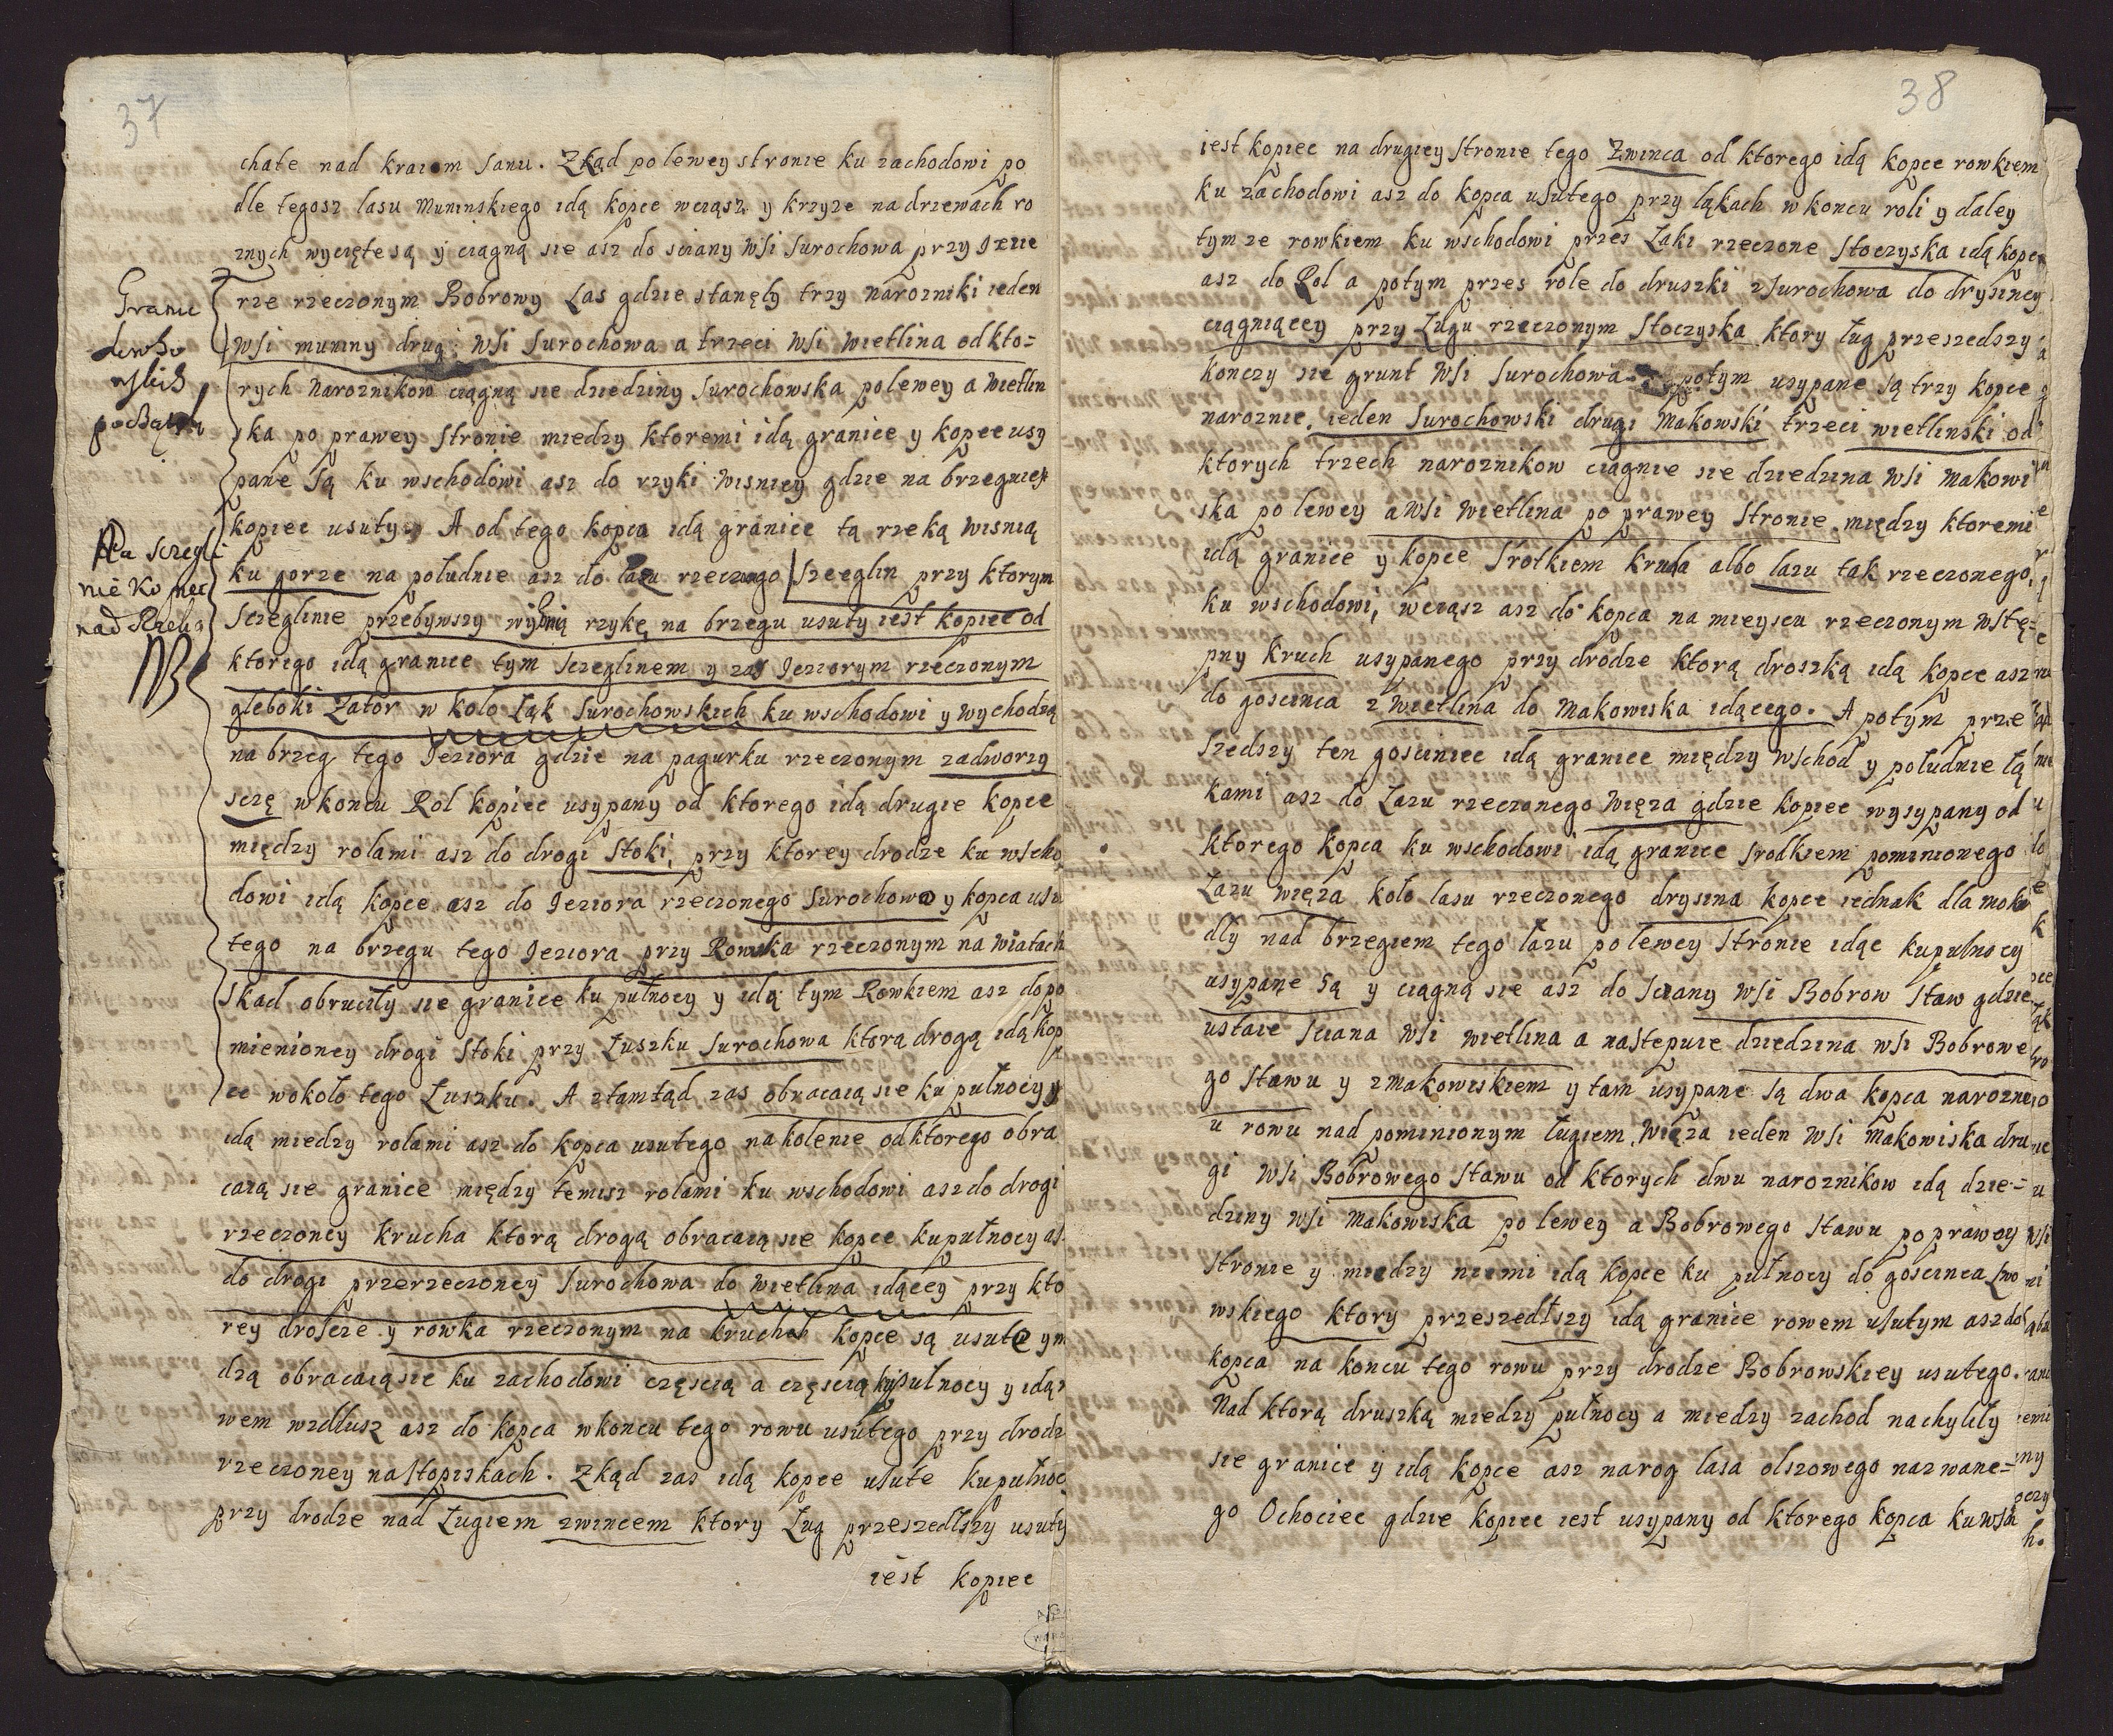 37
chate nad kraiem Sanu. Zkąd polewey stronie ku zachodowi po
dle tegosz lasu Muninskiego idą kopce wciąsz y krzyze na drzewach ro
znych wycięte są y ciągną sie asz do sciany wsi Surochowa przy Iezie
rze rzeczonym Bobrowy Las gdzie stanęły trzy narozniki ieden
wsi muniny drugi wsi Surochowa a trzeci wsi wietlina od kto=
rych Naroznikow ciągną sie dziedziny Surochowska polewey a wietlin
ska po prawey stronie miedzy ktoremi idą granice y kopce usy
pane są ku wschodowi asz do rzyki wisnicy gdzie na brzegu iest
kopiec usuty. A od tego kopca idą granice tą rzeką wisnią
ku gorze na południe asz do lazu rzeczonego Szczeglin przy ktorym
Sczeglinie przebywszy wisnią rzykę na brzegu usuty iest kopiec od
ktorego idą granice tym Sczeglinem y zas Jeziorym rzeczonym
gleboki Zator w koło łąk Surochowskich ku wschodowi y wychodzą
na brzeg tego Jeziora gdzie na pagurku rzeczonym zadworzy
sczę w koncu Rol kopiec usypany od ktorego idą drugie kopce
między rolami asz do drogi Stoki, przy ktorey drodze ku wscho
dowi idą kopce asz do Jeziora rzeczonego Surochowo y kopca usu
tego na brzegu tego Jeziora przy Rowka rzeczonym na wiatach
Skad obruciły sie granice ku pułnocy y idą tym Rowkiem asz do po
mienioney drogi Stoki przy Łuszku Surochowa ktorą drogą idą kop
ce wokoło tego Łuszku. A ztamtąd zas obracaią sie ku pułnocy y
idą miedzy rolami asz do kopca usutego na kolenie od ktorego obra
caią sie granice między temisz rolami ku wschodowi asz do drogi
rzeczoney krucha ktorą drogą obracaią sie kopce ku pułnocy as
do drogi przerzeczoney Surochowa do wietlina idącey przy kto
rey drosze y rowka rzeczonym na kruchah kopce są usute y m
dzą obracaią sie ku zachodowi częscią a częscią ku pułnocy y idą r
wem wzdłusz asz do kopca w koncu tego rowu usutego przy drodz
rzeczoney na Stopiskach. Zkąd zas idą kopce usute ku pułnoc
przy drodze nad Ługiem zwincem ktory Ług przeszedłszy usuty
iest kopiec
Granic
podsądk
Na Sczegli
nie Kopiec
nad Rzeką
NB
38
iest kopiec na drugiey stronie tego Zwinca od ktorego idą kopce rowkiem
ku zachodowi asz do kopca usutego przy łąkach w koncu roli y daley
tymze rowkiem ku wschodowi przes Łaki rzeczone Stoczyska idą kopce
asz do Rol a potym przes role do druszki z Surochowa do drysiney
ciągniącey przy Ługu rzeczonym Stoczyska ktory ług przeszedszy
konczy sie grunt wsi Surochowa potym usypane są trzy kopce
naroznie, ieden Surochowski drugi Makowski trzeci wietlinski od
ktorych trzech naroznikow ciągnie sie dziedzina wsi Makowi
ska po lewey a wsi wietlina po prawey stronie między ktoremi
idą granice y kopce srotkiem kruha albo lazu tak rzeczonego,
ku wschodowi, wciąsz asz do kopca na mieyscu rzeczonym wstę=
pny kruch usypanego przy drodze ktorą droszką idą kopce asz
do goscinca z wietlina do Makowiska idącego. A potym prze
szedszy ten gosciniec idą granice między wschod y południe łą
kami asz do Łazu rzeczonego Więza gdzie kopiec wysypany od
ktorego kopca ku wschodowi idą granice srodkiem pominionego
Łazu więza koło lasu rzeczonego drysina kopce iednak dla mokr
dły nad brzegiem tego łazu po lewey stronie idąc ku pułnocy
usypane są y ciągną sie asz do sciany wsi Bobrow Staw gdzie
ustaie sciana wsi wietlina a nastepuie dziedzina wsi Bobrowe
go Stawu y z makowiskiem y tam usypane są dwa kopca narozne
u rowu nad pominionym ługiem Więza ieden wsi Makowiska dru
gi wsi Bobrowego Stawu od ktorych dwu naroznikow idą dzie=
dziny wsi Makowiska po lewey a Bobrowego Stawu po prawey
stronie y miedzy niemi idą kopce ku pułnocy do goscinca Lwo
wskiego ktory przeszedłszy idą granice rowem usutym asz do
kopca na koncu tego rowu przy drodze Bobrowskiey usutego.
Nad ktorą druszką miedzy pułnocy a miedzy zachod nachyliły
sie granice y idą kopce asz na rog lasa olszowego nazwane=
go Ochociec gdzie kopiec iest usypany od ktorego kopca ku wsh